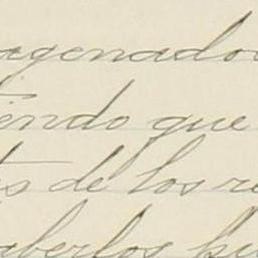 agenado
iendo que
s de los re
aberlos hu